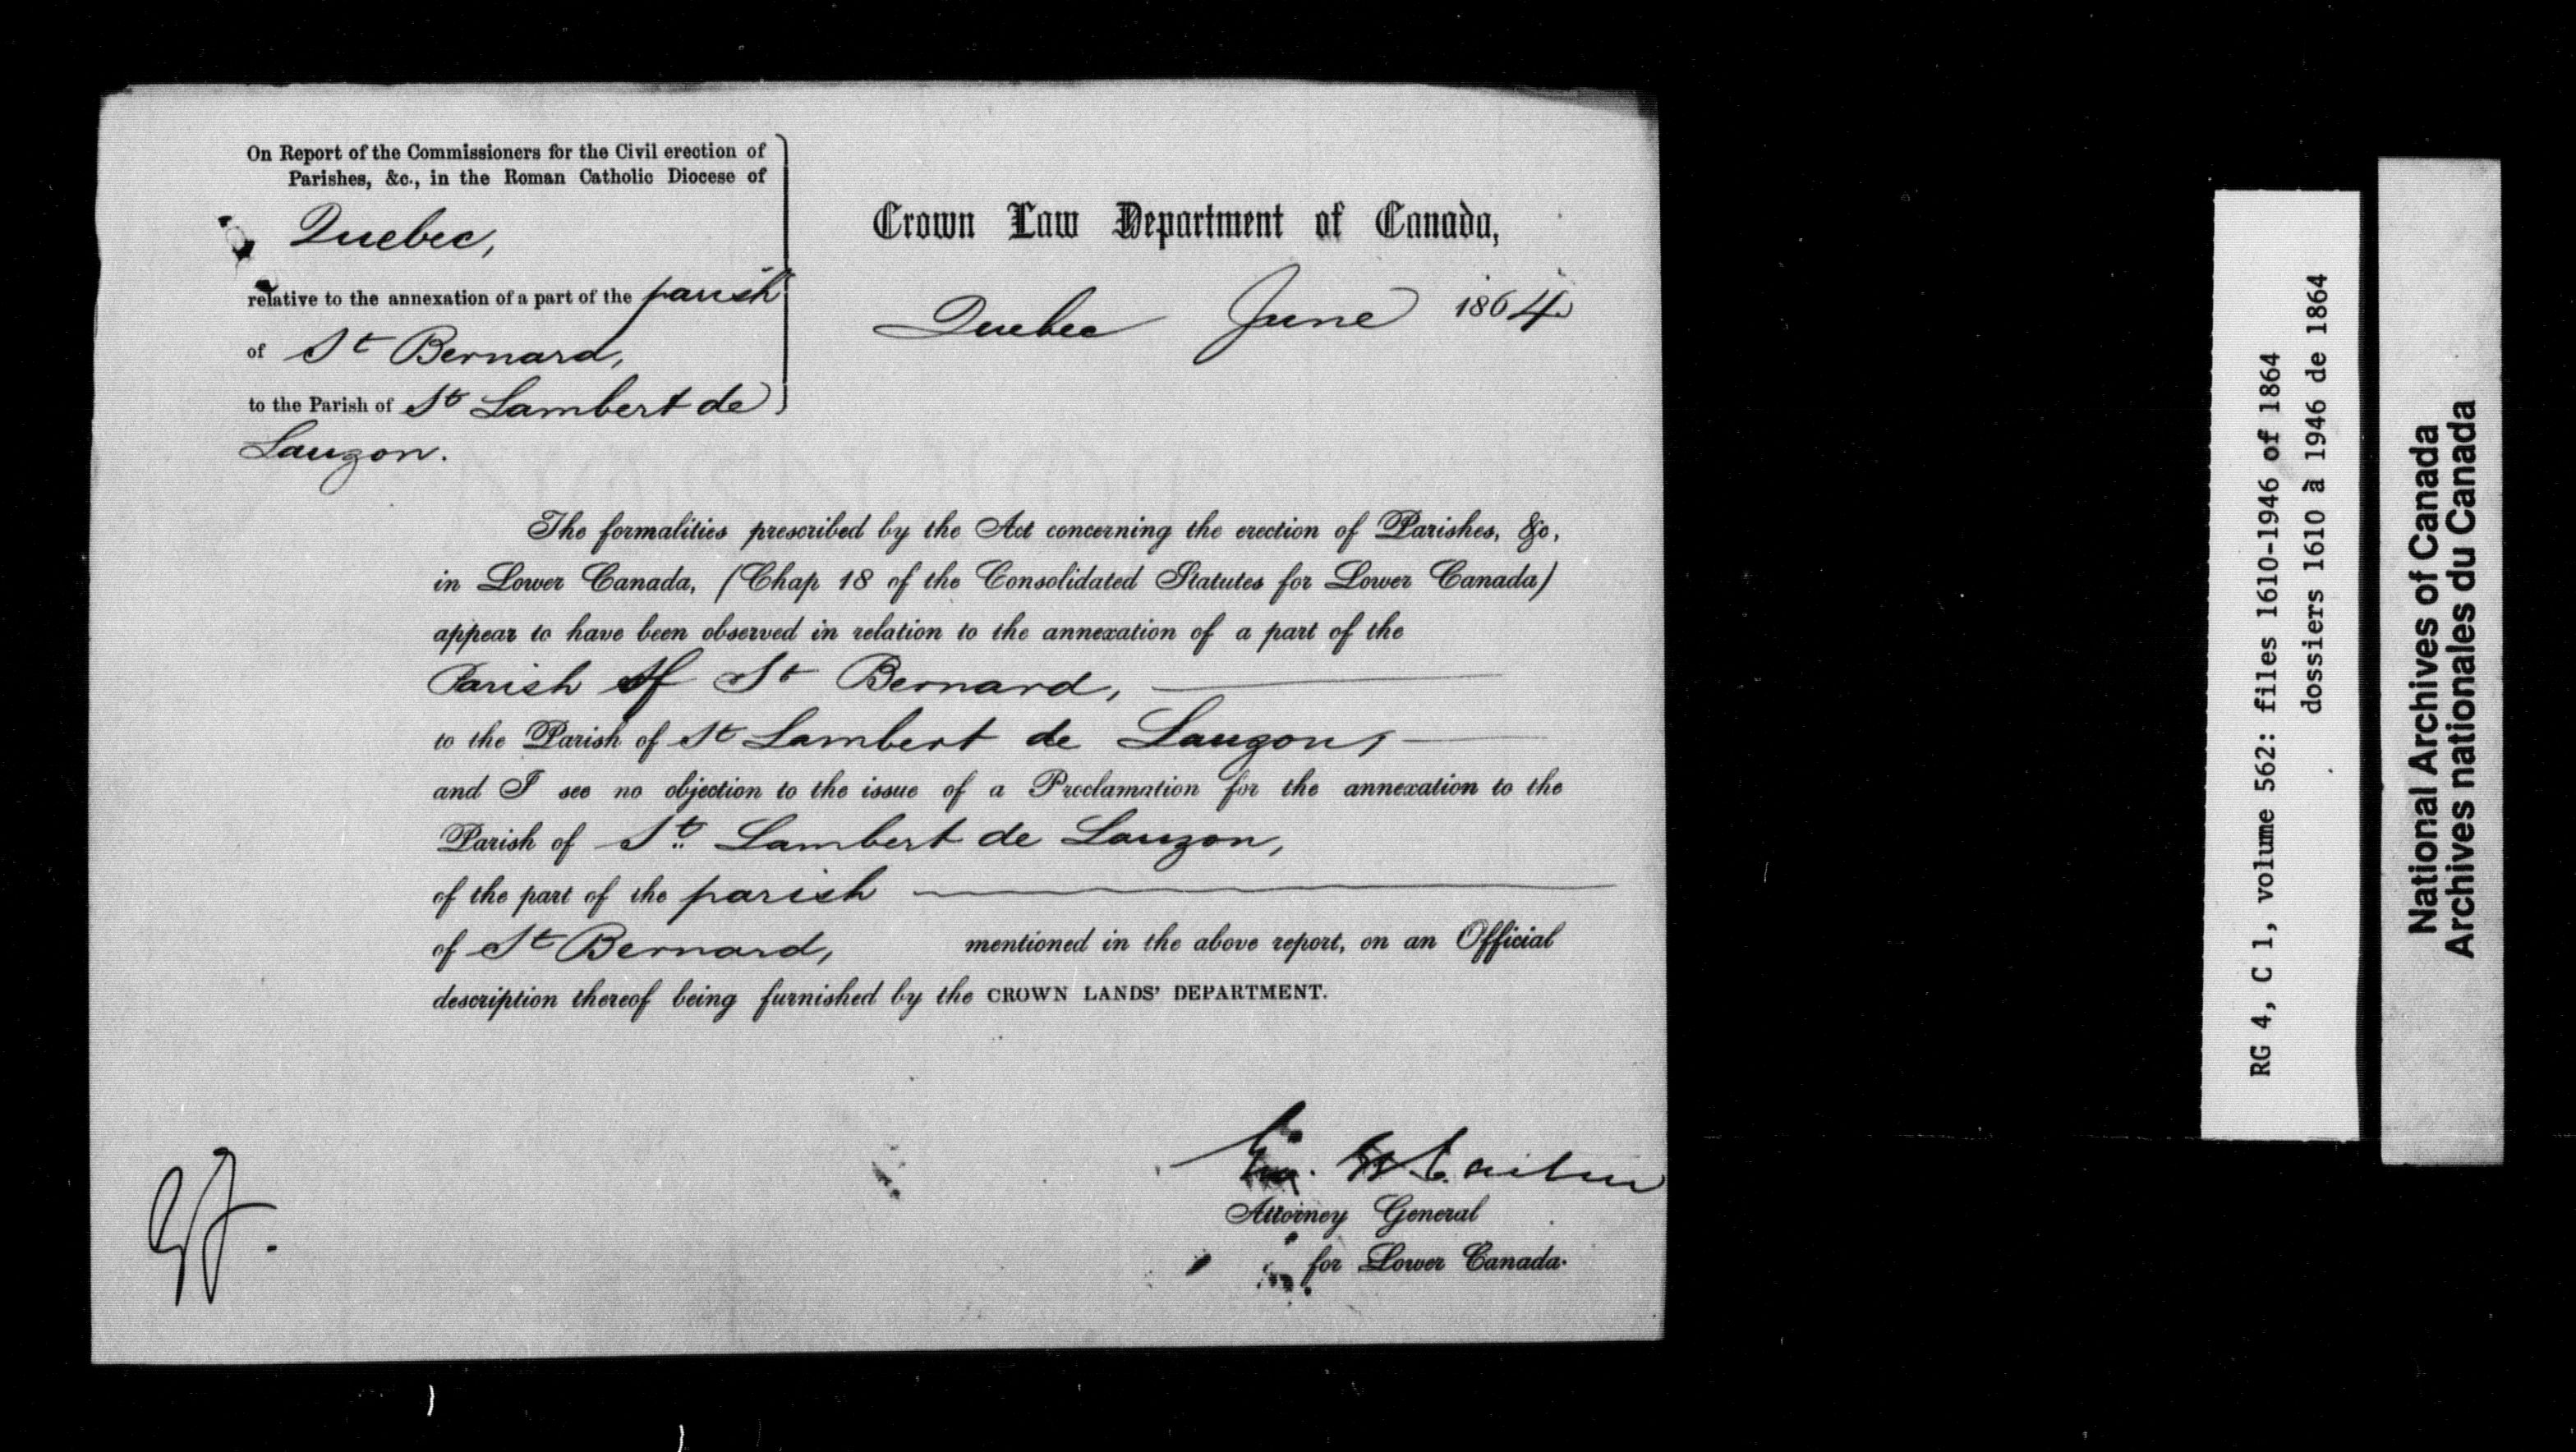 On Report of the Commissioners for the Civil erection of
Parishes, &c., in the Roman Catholic Diocese of
Quebec,
relative to the annexation of a part of the parish
of St Bernard,
to the Parish of St Lambert de
Lauzon.
Crown Law Department of Canada,
Quebec June 1864
The formalities prescribed by the Act concerning the erection of Parishes, &c,
in Lower Canada, (Chap 18 of the Consolidated Statutes for Lower Canada)
appear to have been observed in relation to the annexation of a part of the
Parish of St Bernard,
to the Parish of St Lambert de Lauzon,
and I see no objection to the issue of a Proclamation for the annexation to the
Parish of St. Lambert de Lauzon,
of the part of the parish
of St Bernard, mentioned in the above report, on an Official
description thereof being furnished by the CROWN LANDS' DEPARTMENT.
Attorney General
for Lower Canada.
RG 4, C 1, volume 562: files 1610-1946 of 1864
dossiers 1610 à 1946 de 1864
National Archives of Canada
Archives nationales du Canada